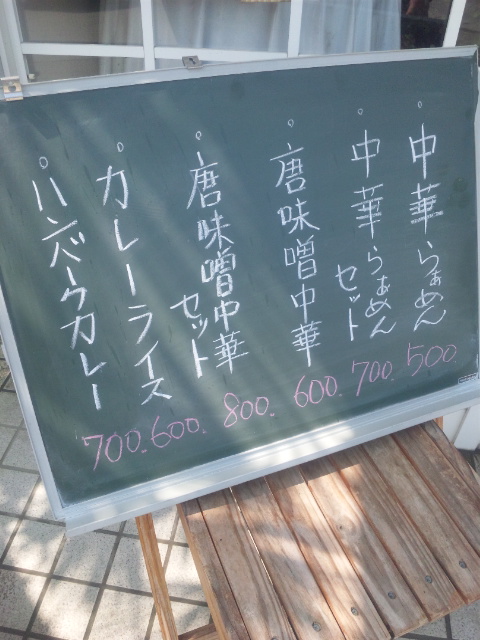 。中華らぁめん 500.
。中華らぁめんセット 700.
。唐味噌中華 600.
。唐味噌中華セット 800.
。カレーライス 600.
。ハンバーグカレー 700.